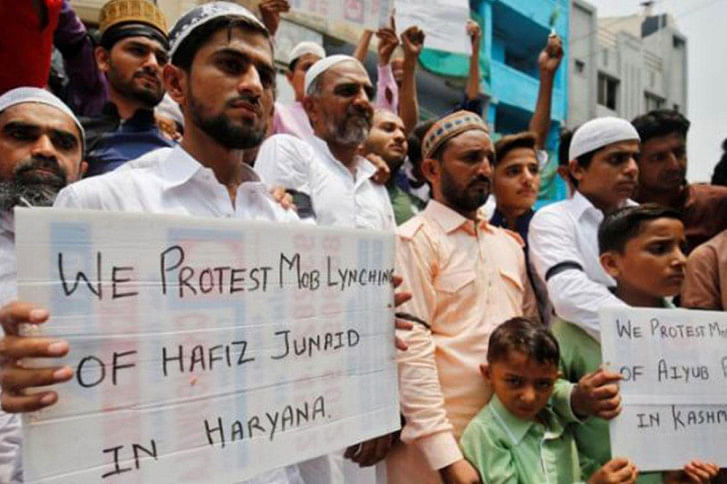 WE PROTEST MOB LYNCHING
OF HAFIZ JUNAID
IN HARYANA.
WE PROTEST
OF AIYUB
IN